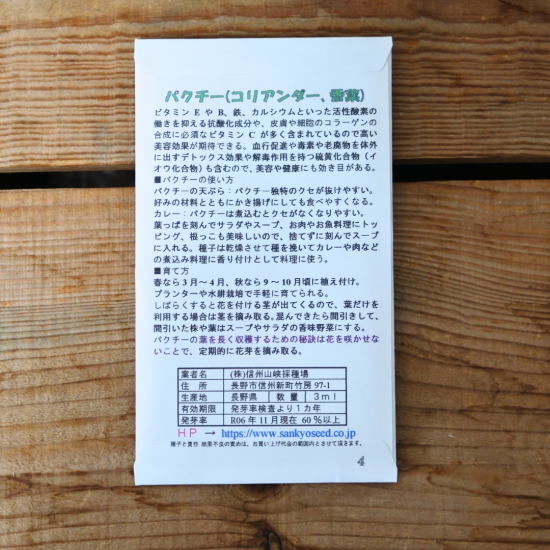 パクチー(コリアンダー、香菜)
ビタミン E や B、鉄、カルシウムといった活性酸素の
働きを抑える抗酸化成分や、皮膚や細胞のコラーゲンの
合成に必須なビタミン C が多く含まれているので高い
美容効果が期待できる。血行促進や毒素や老廃物を体外
に出すデトックス効果や解毒作用を持つ硫黄化合物(イ
オウ化合物)も含むので、美容や健康にも効き目がある。
■パクチーの使い方
パクチーの天ぷら:パクチー独特のクセが抜けやすい。
好みの材料とともにかき揚げにしても食べやすくなる。
カレー:パクチーは煮込むとクセがなくなりやすい。
葉っぱを刻んでサラダやスープ、お肉やお魚料理にトッ
ピング、根っこも美味しいので、捨てずに刻んでスープ
に入れる。種子は乾燥させて種を挽いてカレーや肉など
の煮込み料理に香り付けとして料理に使う。
■育て方
春なら3月~4月、秋なら9~10月頃に植え付け。
プランターや水耕栽培で手軽に育てられる。
しばらくすると花を付ける茎が出てくるので、葉だけを
利用する場合は茎を摘み取る。混んできたら間引きして、
間引いた株や葉はスープやサラダの香味野菜にする。
パクチーの葉を長く収穫するための秘訣は花を咲かせな
いことで、定期的に花芽を摘み取る。
業者名 (株)信州山峡採種場
住 所 長野市信州新町竹房97-1
生産地 長野県 数 量 3ml
有効期限 発芽率検査より1カ年
発芽率 R06年11月現在 60%以上
HP → https://www.sankyoseed.co.jp
種子と責任 結果不良の責めは、お買い上げ代金の範囲内とさせて頂きます。
4